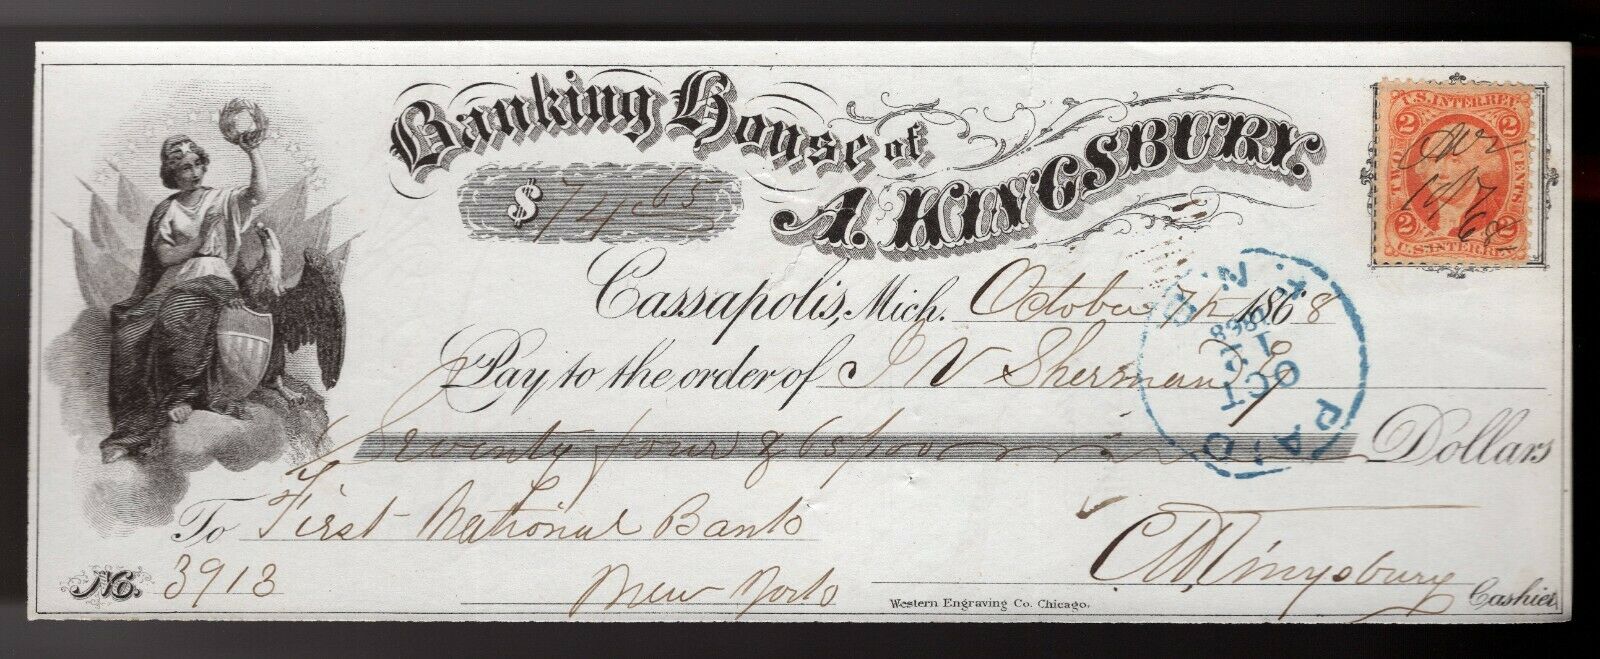 Banking House of
A. KINGSBURY.
$ 74.65
U.S. INTER. REV.
2 2
TWO CENTS
Oct 7 68
2 2
U.S. INTER. REV.
Cassapolis, Mich. October 7th 1868
Pay to the order of J V Sherman
Seventy four & 65/100 Dollars
To First National Bank
New York
No. 3913
Kingsbury
Cashier
Western Engraving Co. Chicago.
PAID
OCT
12
1868
F.N.B.